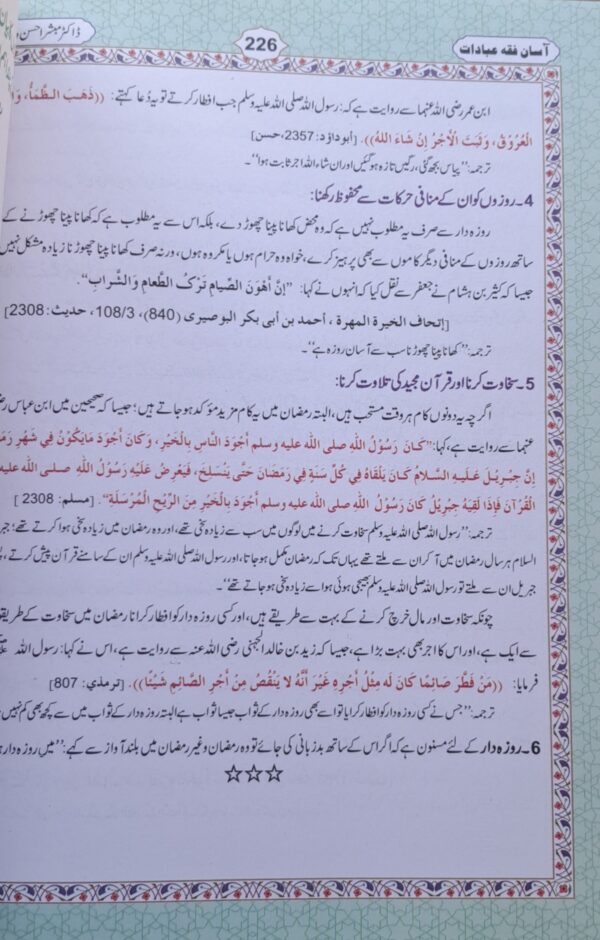 آسان فقہ عبادات
226
ڈاکٹر مبشر احسن و
ابن عمر رضی اللہ عنہما سے روایت ہے کہ: رسول اللہ صلی اللہ علیہ وسلم جب افطار کرتے تو یہ دعا کہتے: ((ذَهَبَ الظَّمَأُ، وَا
الْعُرُوْقُ، وَثَبَتَ الْأَجْرُ إِنْ شَاءَ اللهُ)). [أبوداؤد: 2357،حسن]
ترجمہ: ”پیاس بجھ گئی، رگیں تازہ ہوگئیں اور ان شاء اللہ اجر ثابت ہوا“۔
4۔روزوں کو ان کے منافی حرکات سے محفوظ رکھنا:
روزہ دار سے صرف یہ مطلوب نہیں ہے کہ وہ محض کھانا پینا چھوڑ دے، بلکہ اس سے یہ مطلوب ہے کہ کھانا پینا چھوڑنے کے
ساتھ روزوں کے منافی دیگر کاموں سے بھی پرہیز کرے، خواہ وہ حرام ہوں یا مکروہ ہوں، ورنہ صرف کھانا پینا چھوڑنا زیادہ مشکل نہیں
جیسا کہ کثیر بن ہشام نے جعفر سے نقل کیا کہ انہوں نے کہا: ”إِنَّ أَهْوَنَ الصِّيامِ تَرْكُ الطَّعامِ وَالشَّرابِ“.
[إتحاف الخيرة المهرة ، أحمد بن أبى بكر البوصيرى (840)، 108/3، حديث: 2308]
ترجمہ: ”کھانا پینا چھوڑنا سب سے آسان روزہ ہے“۔
5۔سخاوت کرنا اور قرآن مجید کی تلاوت کرنا:
اگرچہ یہ دونوں کام ہر وقت مستحب ہیں، البتہ رمضان میں یہ کام مزید مؤکد ہو جاتے ہیں؛ جیسا کہ صحیحین میں ابن عباس رضی
عنہما سے روایت ہے، کہا: ”كَانَ رَسُوْلُ اللهِ صلى الله عليه وسلم أَجْوَدَ النَّاسِ بِالْخَيْرِ، وَكَانَ أَجْوَدَ مَايَكُوْنُ فِي شَهْرِ رَمَ
إِنَّ جِبْرِيْلَ عَلَيهِ السَّلامُ كَانَ يَلْقَاهُ فِي كُلِّ سَنَةٍ فِي رَمَضَانَ حَتَّى يَنْسَلِخَ، فَيَعْرِضُ عَلَيْهِ رَسُوْلُ اللهِ صلى الله عليه
الْقُرْآنَ فَإِذَا لَقِيَهُ جِبْرِيْلُ كَانَ رَسُوْلُ اللهِ صلى الله عليه وسلم أَجْوَدَ بِالْخَيْرِ مِنَ الرِّيْحِ الْمُرْسَلَةِ“. [مسلم: 2308]
ترجمہ: ”رسول اللہ صلی اللہ علیہ وسلم سخاوت کرنے میں لوگوں میں سب سے زیادہ سخی تھے، اور وہ رمضان میں زیادہ سخی ہوا کرتے تھے؛ جبر
السلام ہر سال رمضان میں آ کر ان سے ملتے تھے یہاں تک کہ رمضان مکمل ہو جاتا، اور رسول اللہ صلی اللہ علیہ وسلم ان کے سامنے قرآن پیش کرتے،
جبریل ان سے ملتے تو رسول اللہ صلی اللہ علیہ وسلم بھیجی ہوئی ہوا سے زیادہ سخی ہو جاتے تھے“۔
چونکہ سخاوت اور مال خرچ کرنے کے بہت سے طریقے ہیں، اور کسی روزہ دار کو افطار کرانا رمضان میں سخاوت کے طریقو
سے ایک ہے، اور اس کا اجر بھی بہت بڑا ہے، جیسا کہ زید بن خالد الجہنی رضی اللہ عنہ سے روایت ہے، اس نے کہا: رسول اللہ
فرمایا: ((مَنْ فَطَّرَ صَائِمًا كَانَ لَه مِثْلُ أَجْرِهِ غَيْرَ أَنَّهُ لا يَنْقُصُ مِنْ أَجْرِ الصَّائِمِ شَيْئًا)). [ترمذي: 807]
ترجمہ: ”جس نے کسی روزہ دار کو افطار کرایا تو اسے بھی روزہ دار کے ثواب جیسا ثواب ہے البتہ روزہ دار کے ثواب میں سے کچھ بھی کم نہیں
6۔روزہ دار کے لئے مسنون ہے کہ اگر اس کے ساتھ بدزبانی کی جائے تو وہ رمضان وغیر رمضان میں بلند آواز سے کہے: ”میں روزہ دار
☆☆☆